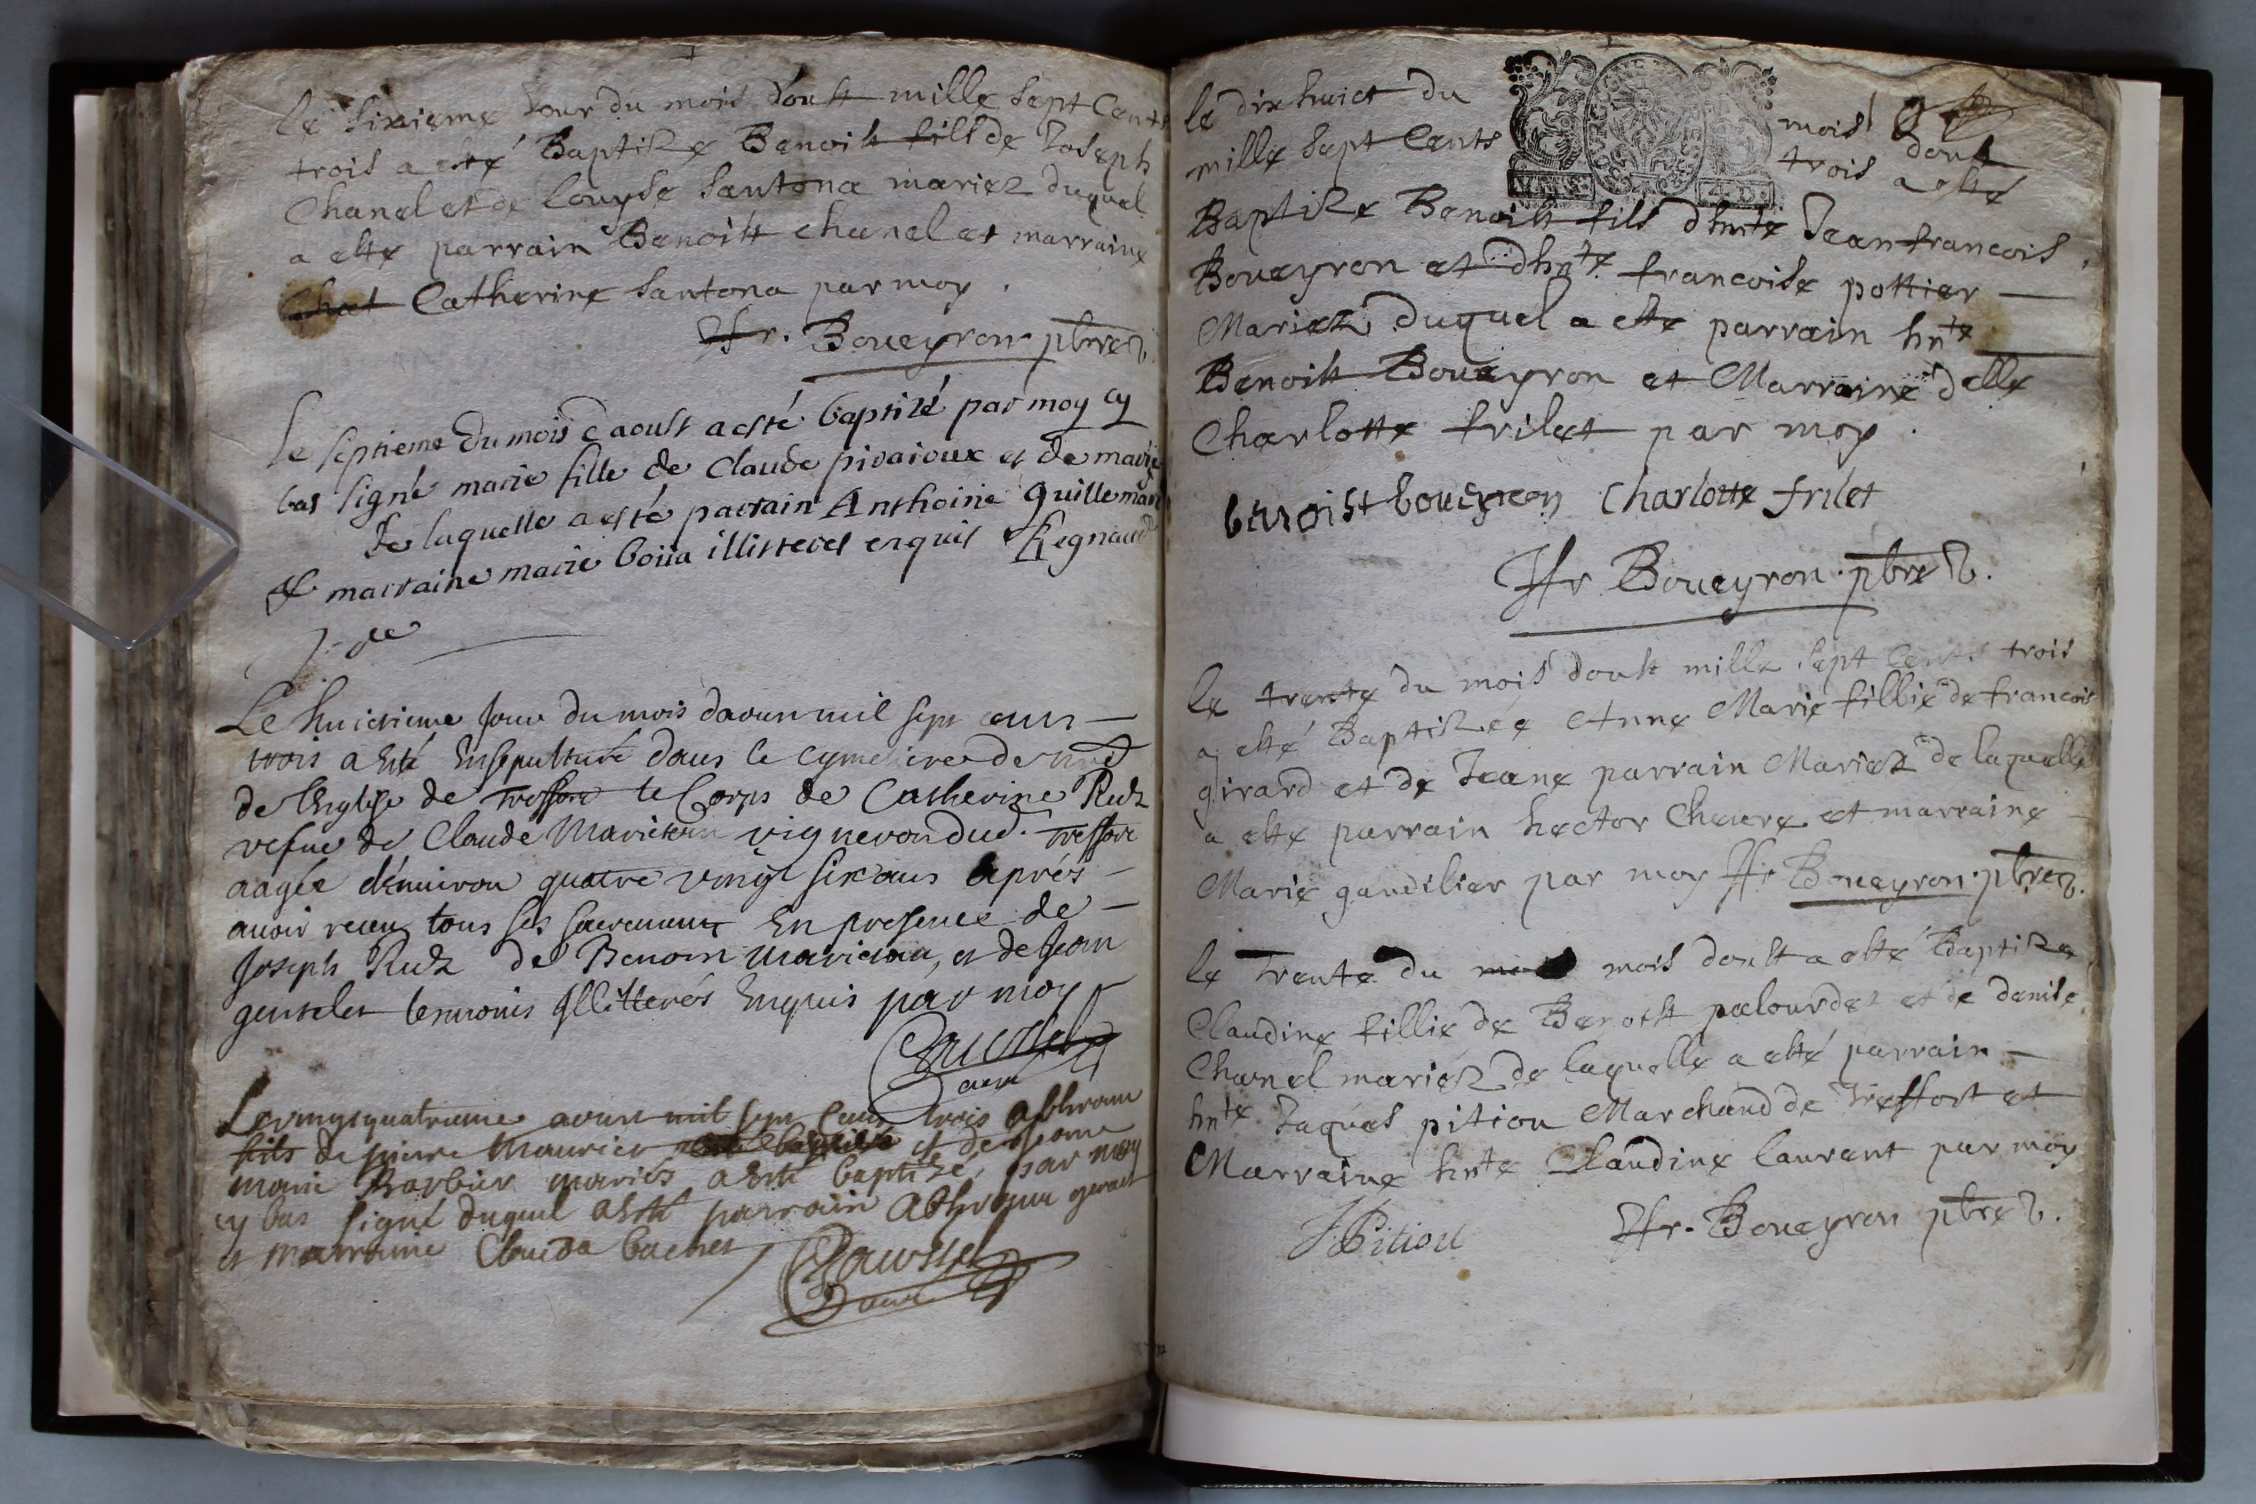 le sixieme Jour du mois doust mille sept Cents
trois a esté Baptize Benoist fils de Joseph
Chanel et de louyse santona mariez duquel
a este parrain Benoist chanel et marraine
Catherine santona par moy .
Hr. Boueyron pbre
le septieme du mois d aoust a esté baptizé par moy cy
bas signé marie fille de Claude pivaioux et de marie
de laquelle a esté parrain Anthoine Guillemau
& marraine marie boiia illisteres enquis Regnaud
Le huictieme Jour du mois daoust mil sept cents
trois a esté Ensepulturé dans le cymetiere de
de lEglise de Treffort le Corps de Catherine Rudz
vefue de Claude Marietan vigneron dud. Treffort
aagée dénuiron quatre vingt six ans aprés
auoir receu tous ses sacrements En presence de
Joseph Rudz de Benoist Marietan, et de Jean
gentelet temoins Illitterés Enquis par moy
Le vingt quatrieme aoust mil sept Cents trois Abbraam
fils de pierre Maurier et de
marie Barbier mariés a esté baptizé par moy
cy bas signé duquel a esté parrain Abhraam
et marraine Clauda
le dix huict du mois doust
mille sept Cents trois a esté
Baptize Benoist fils dhnte Jean francois
Boueyron et dhnte francoise pottier
Mariez duquel a este parrain hnte
Benoist Boueyron et Marraine delle
Charlotte frilet par moy .
benoist boueyron Charlotte frilet
Hr Boueyron pbre
le trente du mois doust mille sept Cents trois
a esté Baptizée Anne Marie fillie de francois
girard et de Jeane parrain Mariez de laquelle
a este parrain hector Cheure et marraine
Marie gaudilier par moy Hr Boueyron pbre
le Trente du mois doust a esté Baptize
Claudine fillie de Benoist palourdez et de denise
Chanel mariez de laquelle a esté parrain
hnte Jaques pitiou Marchand de Treffort et
Marraine hnte Claudine laurent par moy
JPitiou Hr. Boueyron pbre